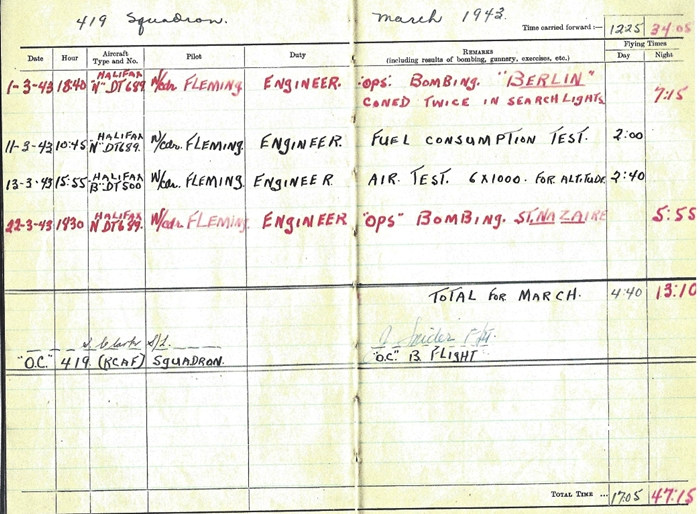 419 Squadron. March 1943. Time carried forward:— 12 25 34.05
Date Hour Aircraft Type and No. Pilot Duty Remarks (including results of bombing, gunnery, exercises, etc.) Flying Times Day Night
1-3-43 18:40 HALIFAX "N" DT689 W/cdr. FLEMING. ENGINEER. "OPS". BOMBING. "BERLIN"
CONED TWICE IN SEARCHLIGHTS 7:15
11-3-43 10:45 HALIFAX "N" DT689. W/cdr. FLEMING. ENGINEER. FUEL CONSUMPTION TEST. 2:00
13-3-43 15:55 HALIFAX B" DT500 W/cdr. FLEMING. ENGINEER. AIR. TEST. 6X1000. FOR ALTITUDE. 2:40
22-3-43 1930 HALIFAX N DT689. W/cdr. FLEMING. ENGINEER "OPS" BOMBING. ST. NAZAIRE 5:55
TOTAL FOR MARCH. 4:40 13:10
S/L. Snider F/Lt.
"O.C." 419. (RCAF) SQUADRON. "O.C." B. FLIGHT
TOTAL TIME ... 17.05 47:15